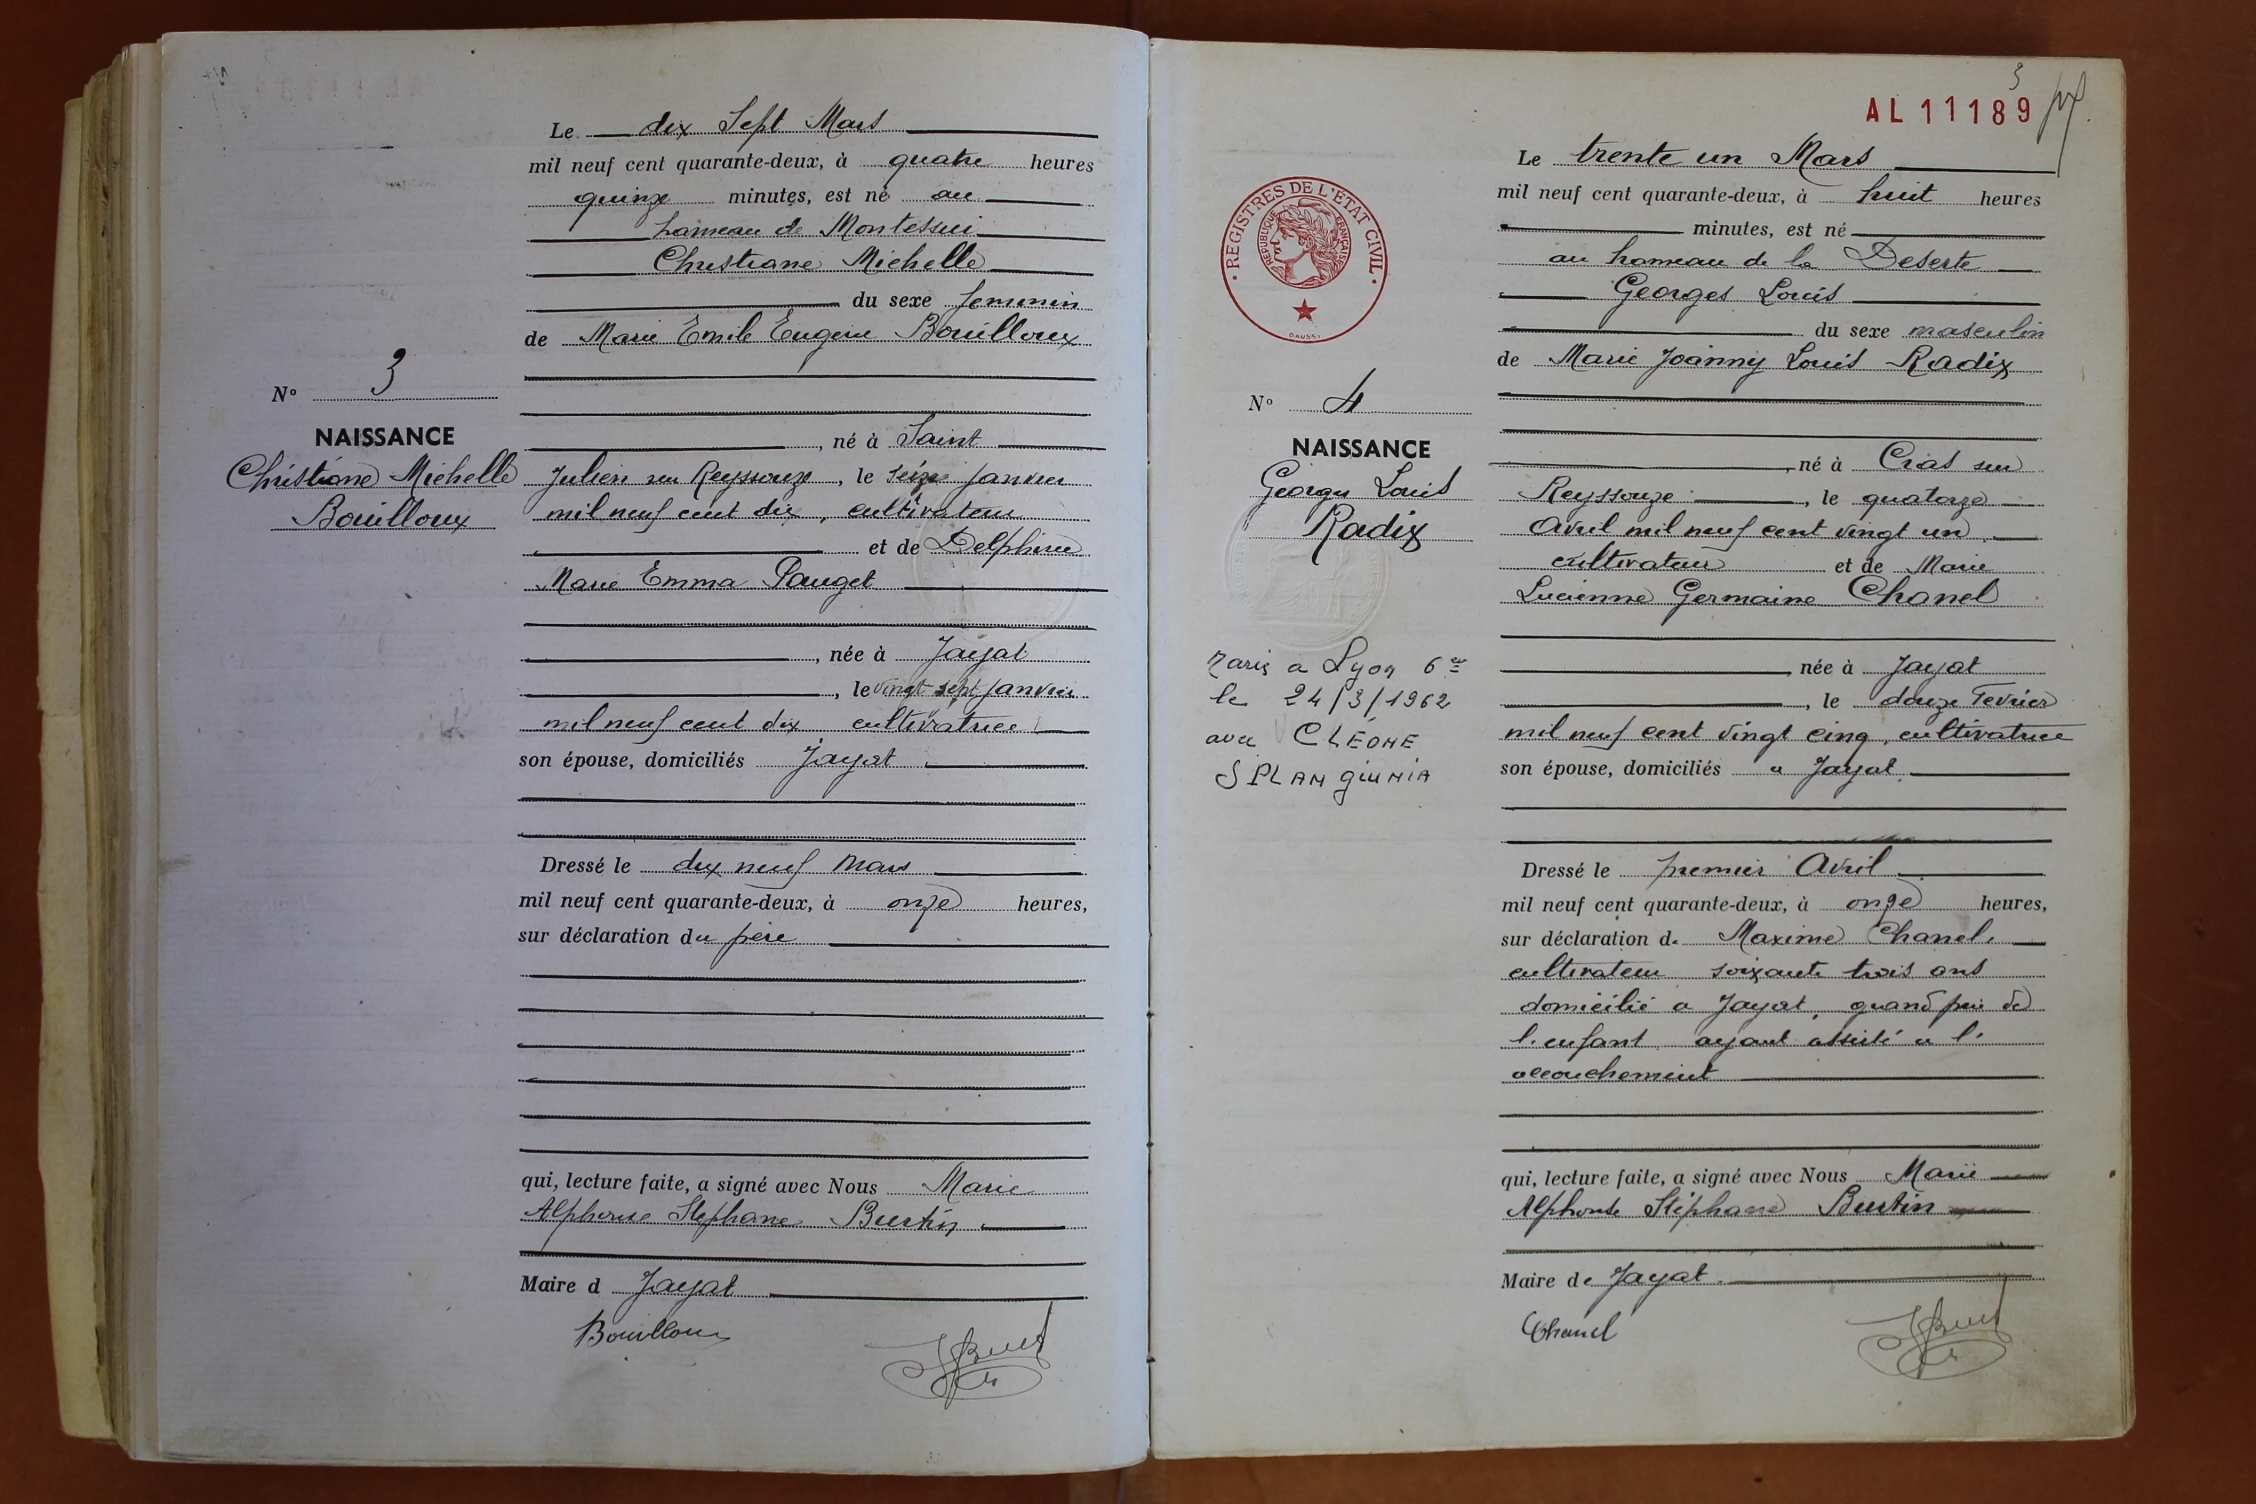 Le dix Sept Mars
mil neuf cent quarante-deux, à quatre heures
quinze minutes, est né au
hameau de Montessui
Christiane Michelle
du sexe feminin
de Marie Emile Eugène Bouilloux
N° 3
NAISSANCE
Christiane Michelle
Bouilloux
, né à Saint
Julien sur Reyssouze, le seize janvier
mil neuf cent dix, cultivateur
et de Delphine
Marie Emma Pauget
, née à Jayat
, le vingt sept janvier
mil neuf cent dix cultivatrice
son épouse, domiciliés Jayat
Dressé le dix neuf Mars
mil neuf cent quarante-deux, à onze heures,
sur déclaration du père
qui, lecture faite, a signé avec Nous Marie
Alphonse Stéphane Burtin
Maire d Jayat
Bouilloux
3
AL 11189
REGISTRES DE L'ÉTAT CIVIL
RÉPUBLIQUE FRANÇAISE
Le trente un Mars
mil neuf cent quarante-deux, à huit heures
minutes, est né
au hameau de la Deserte
Georges Louis
du sexe masculin
de Marie Joanny Louis Radix
N° 4
NAISSANCE
Georges Louis
Radix
Marié a Lyon 6e
le 24/3/1962
avec CLÉOHE
SPLANgiUNIA
, né à Cras sur
Reyssouze, le quatorze
Avril mil neuf cent vingt un
cultivateur et de Marie
Lucienne Germaine Chanel
, née à Jayat
, le douze Fevrier
mil neuf cent vingt cinq, cultivatrice
son épouse, domiciliés a Jayat
Dressé le premier Avril
mil neuf cent quarante-deux, à onze heures,
sur déclaration de Maxime Chanel,
cultivateur soixante trois ans
domicilié a Jayat, grand père de
l'enfant ayant assisté a l'
accouchement
qui, lecture faite, a signé avec Nous Marie
Alphonse Stéphane Burtin
Maire de Jayat.
Chanel